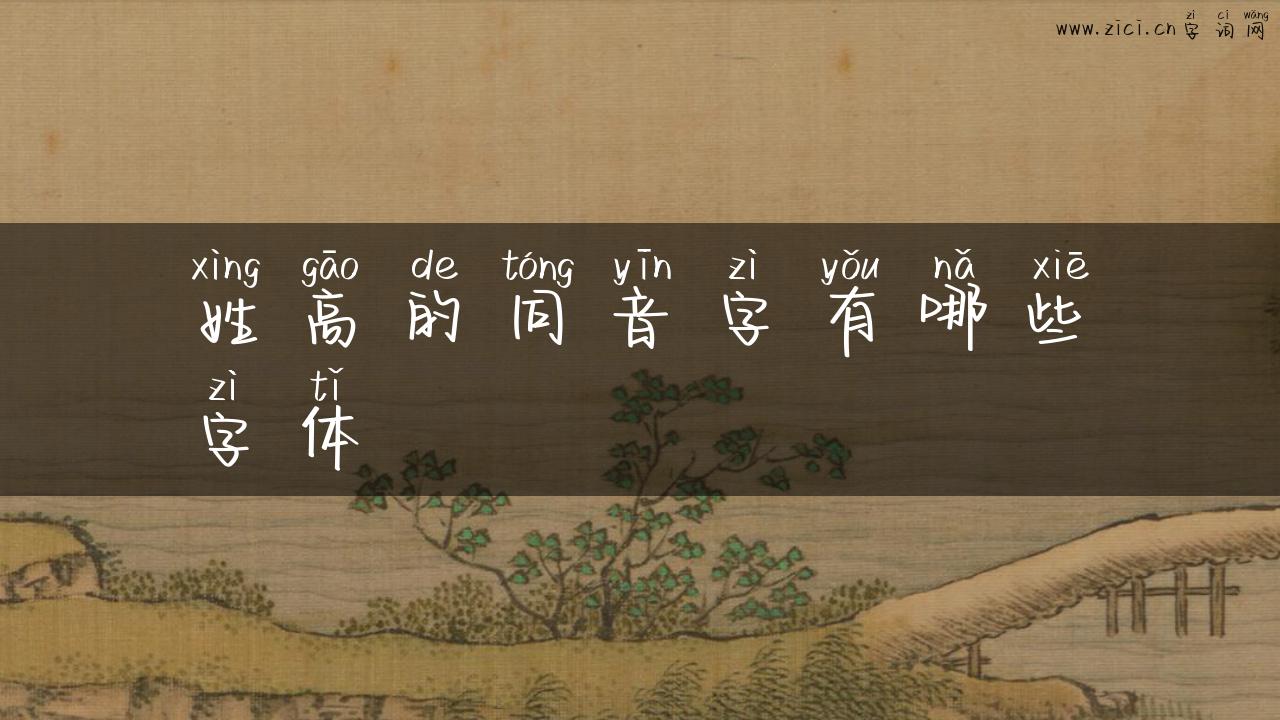 zì cí wǎng
www.zici.cn 字 词 网
xìng gāo de tóng yīn zì yǒu nǎ xiē
姓 高 的 同 音 字 有 哪 些
zì tǐ
字 体